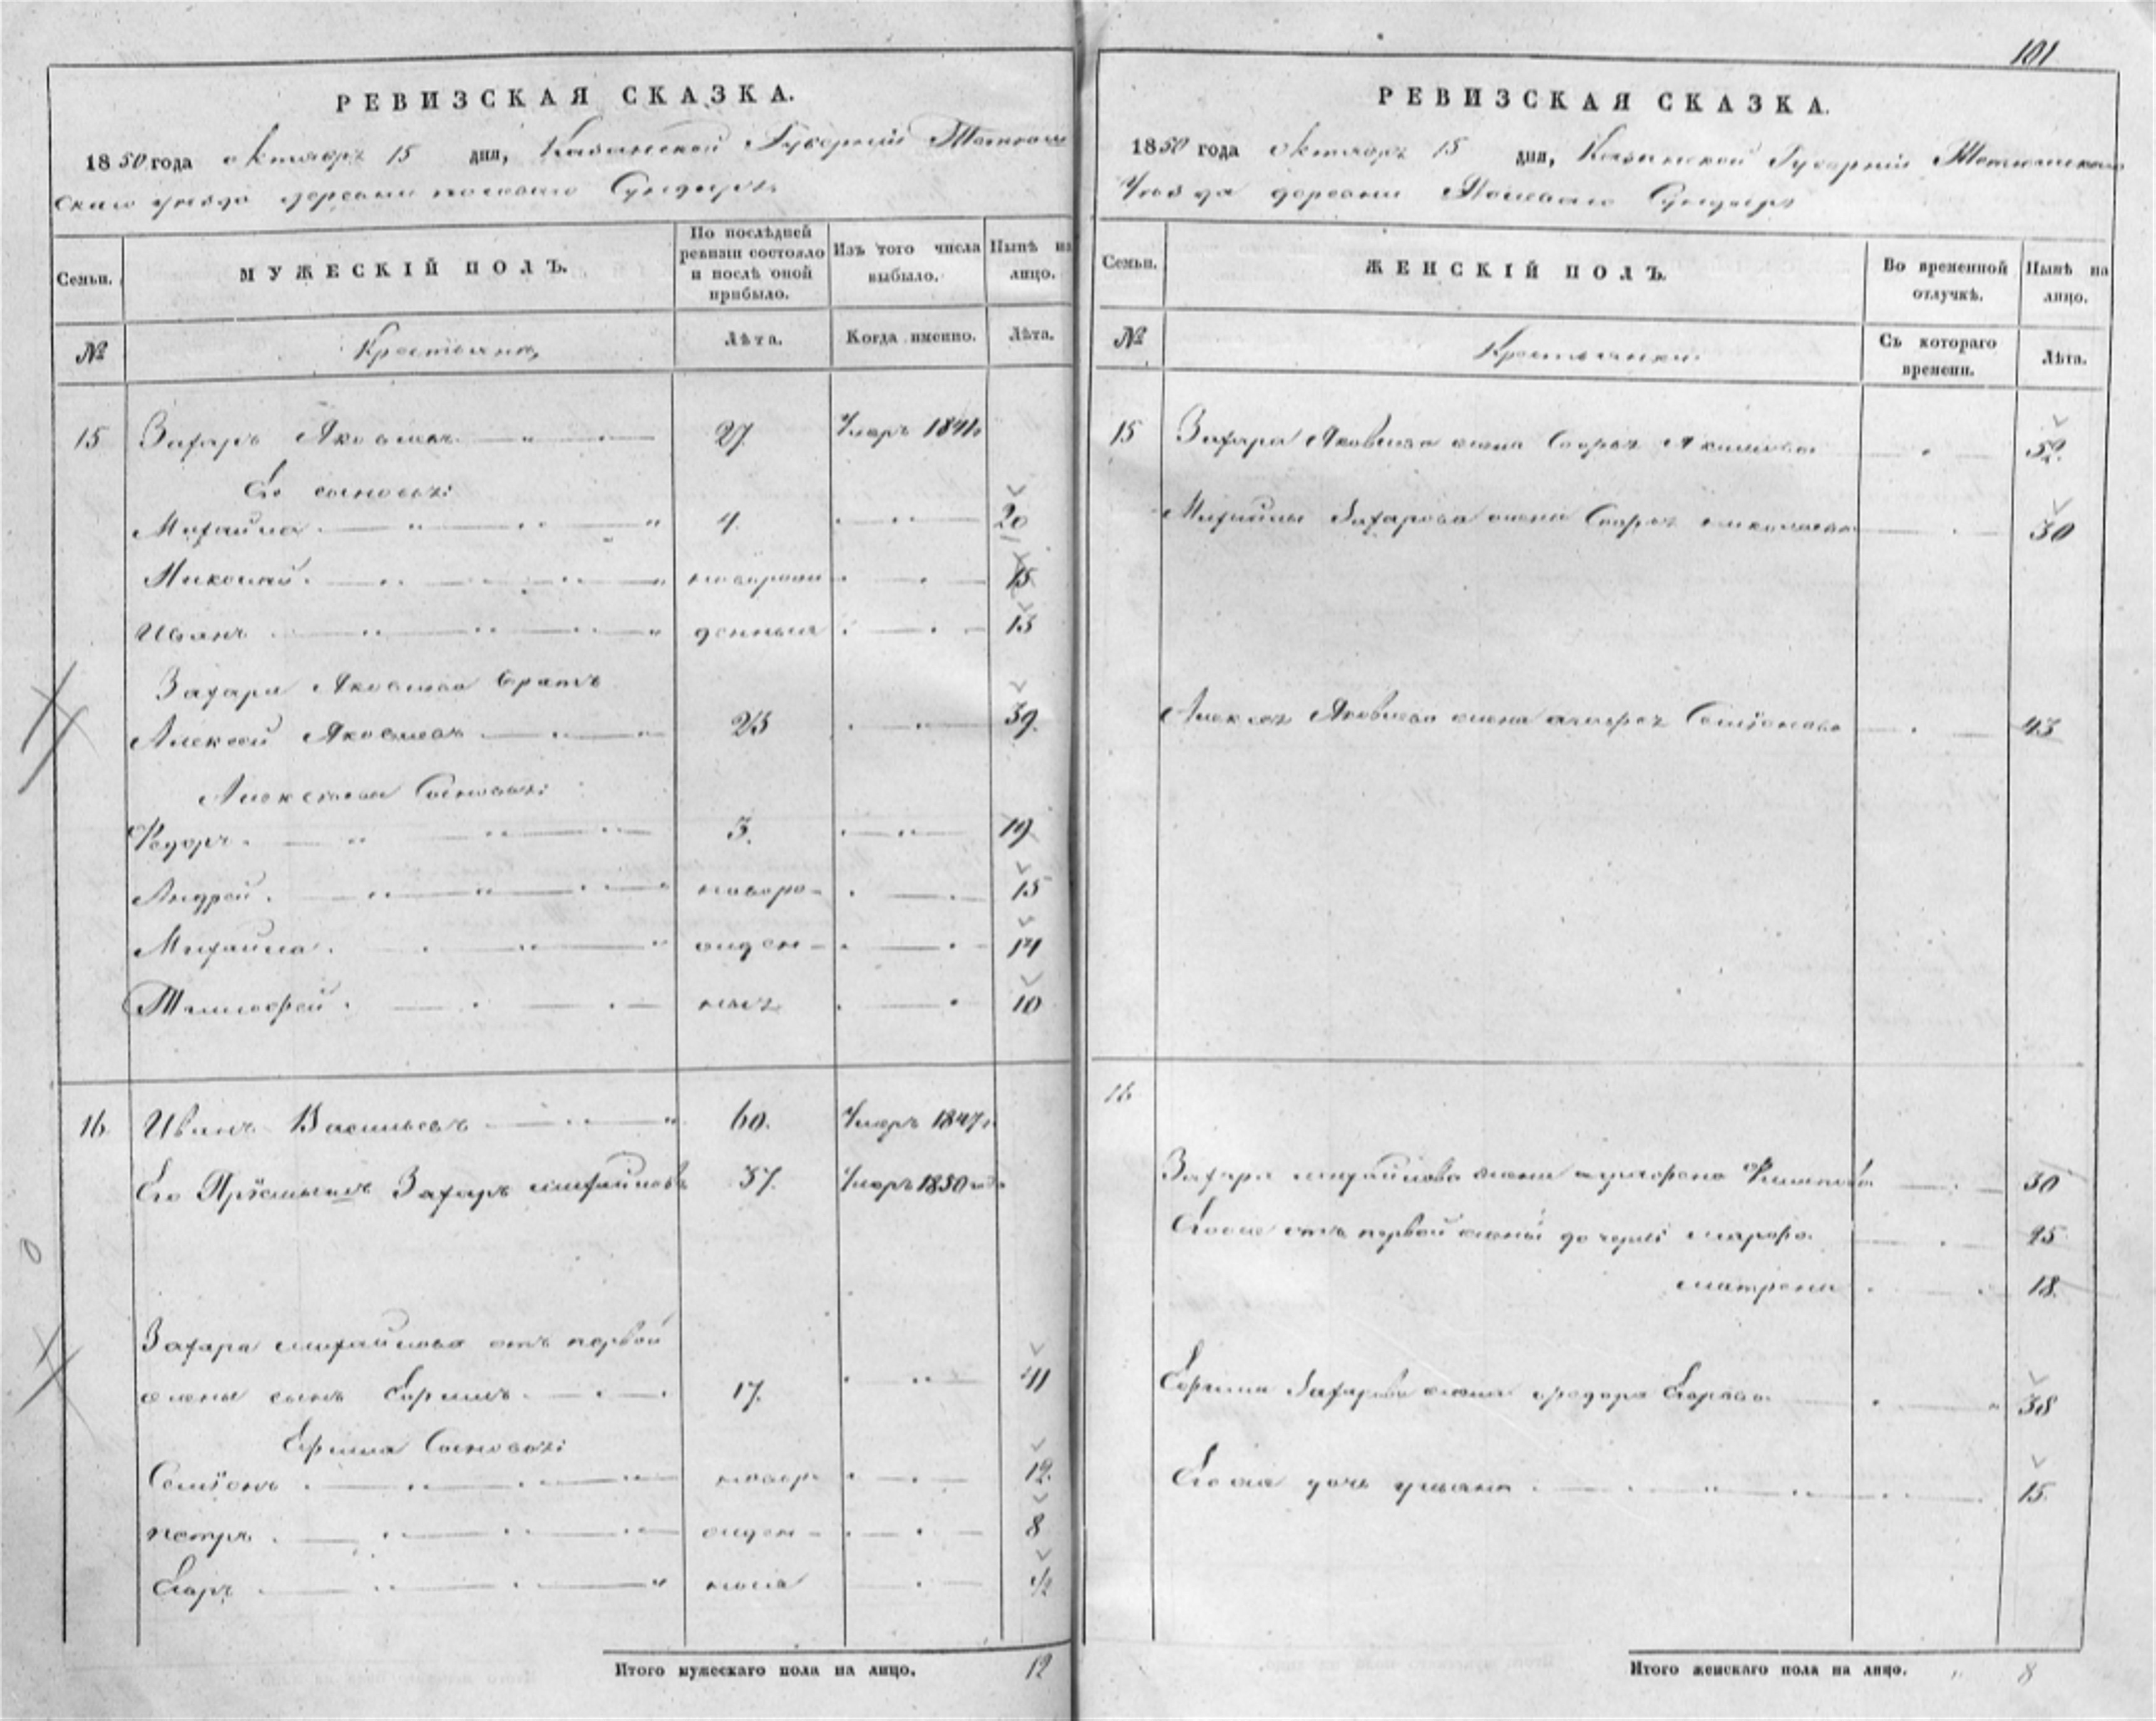 РЕВИЗСКАЯ СКАЗКА.
1850 года октября 15 дня, Казанской Губерніи
скаго уезда деревни Сундырь
Семьи.
МУЖЕСКІЙ ПОЛЪ.
По послѣдней ревизіи состояло и послѣ оной прибыло.
Изъ того числа выбыло.
Нынѣ на лицо.
№
Крестьяне,
Лѣта.
Когда именно.
Лѣта.
15 Захаръ Яковлевъ 27. Умеръ 1841г
Его сыновья:
Михайла 4. 20
Николай новорож 15
Иванъ денныя 13
Захара Яковлева братъ
Алексей Яковлевъ 23 39.
Алексеевы Сыновья:
Федоръ 3. 19
Андрей новоро- 15
Михайла жден- 14
Тимофей 10
16 Иванъ Васильевъ 60. Умеръ 1847г
Его Пріемышъ Захаръ михайловъ 37. Умеръ 1850 года
Захара михайлова отъ первой
жены сынъ Ефримъ 17. 41
Ефрима Сыновья:
Семіонъ новор 12.
петръ жден- 8
Егоръ ныя 1/2
Итого мужескаго пола на лицо. 12
101
РЕВИЗСКАЯ СКАЗКА.
1850 года октября 15 дня, Казанской Губерніи
Уезда деревни Сундырь
Семьи.
ЖЕНСКІЙ ПОЛЪ.
Во временной отлучкѣ.
Нынѣ на лицо.
№
Крестьянки
Съ котораго времени.
Лѣта.
15 Захара Яковлева жена 52.
Михайлы Захарова жена николаева 30
Яковлева жена Семіонова 43
16
Захара михайлова жена аграфена 30
Егоже отъ первой жены дочери марфа 25
матрена 18.
Ефрима Захарова жена федора Егорова 38
Егожа дочь ульяна 15.
Итого женскаго пола на лицо. 8